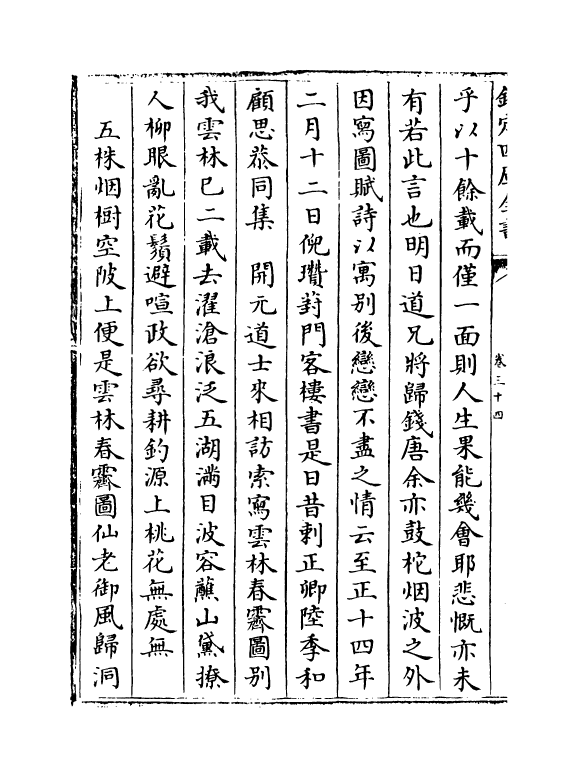 欽定四庫全書
卷三十四
乎以十餘載而僅一面則人生果能幾會耶悲慨亦未
有若此言也明日道兄將歸錢唐余亦鼓柁烟波之外
因寫圖賦詩以寓别後戀戀不盡之情云至正十四年
二月十二日倪瓚葑門客樓書是日昔剌正卿陸季和
顧思恭同集　開元道士來相訪索寫雲林春霽圖别
我雲林已二載去濯滄浪泛五湖滿目波容蘸山黛撩
人柳眼亂花鬚避喧政欲尋耕釣源上桃花無處無
五株烟樹空陂上便是雲林春霽圖仙老御風歸洞